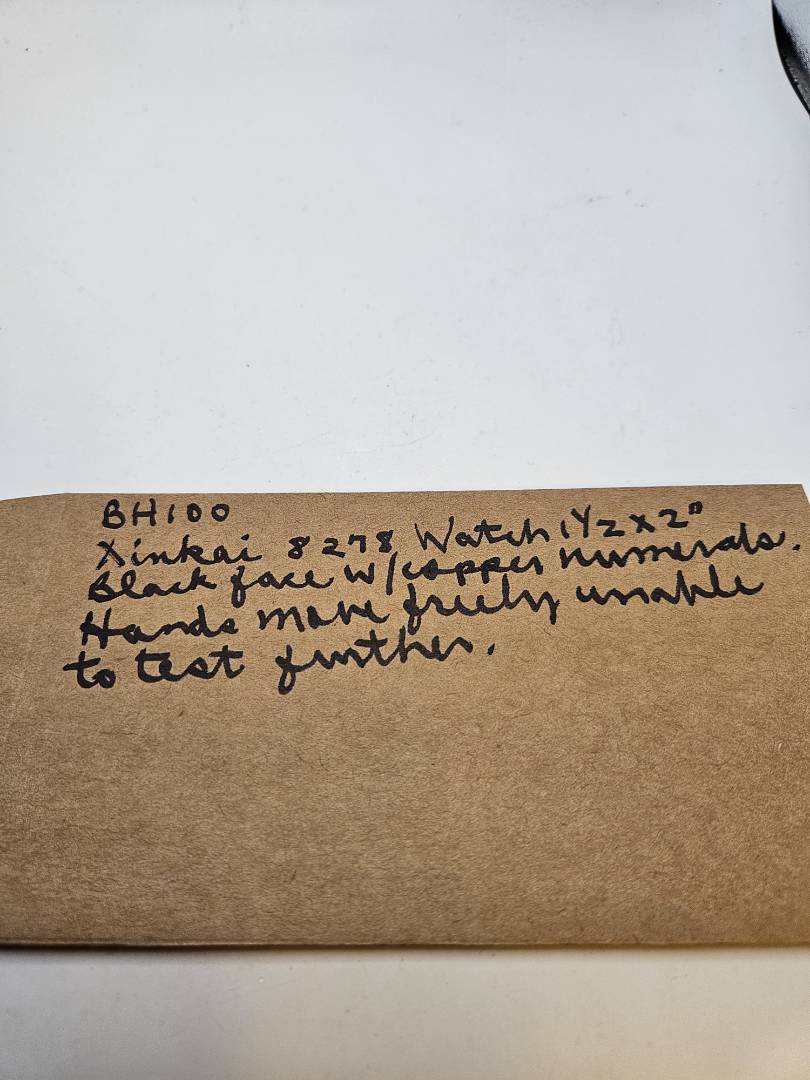 BH100
Xinkai 8278 Watch 1 1/2 x 2"
Black face w/copper numerals.
Hands move freely unable
to test further.